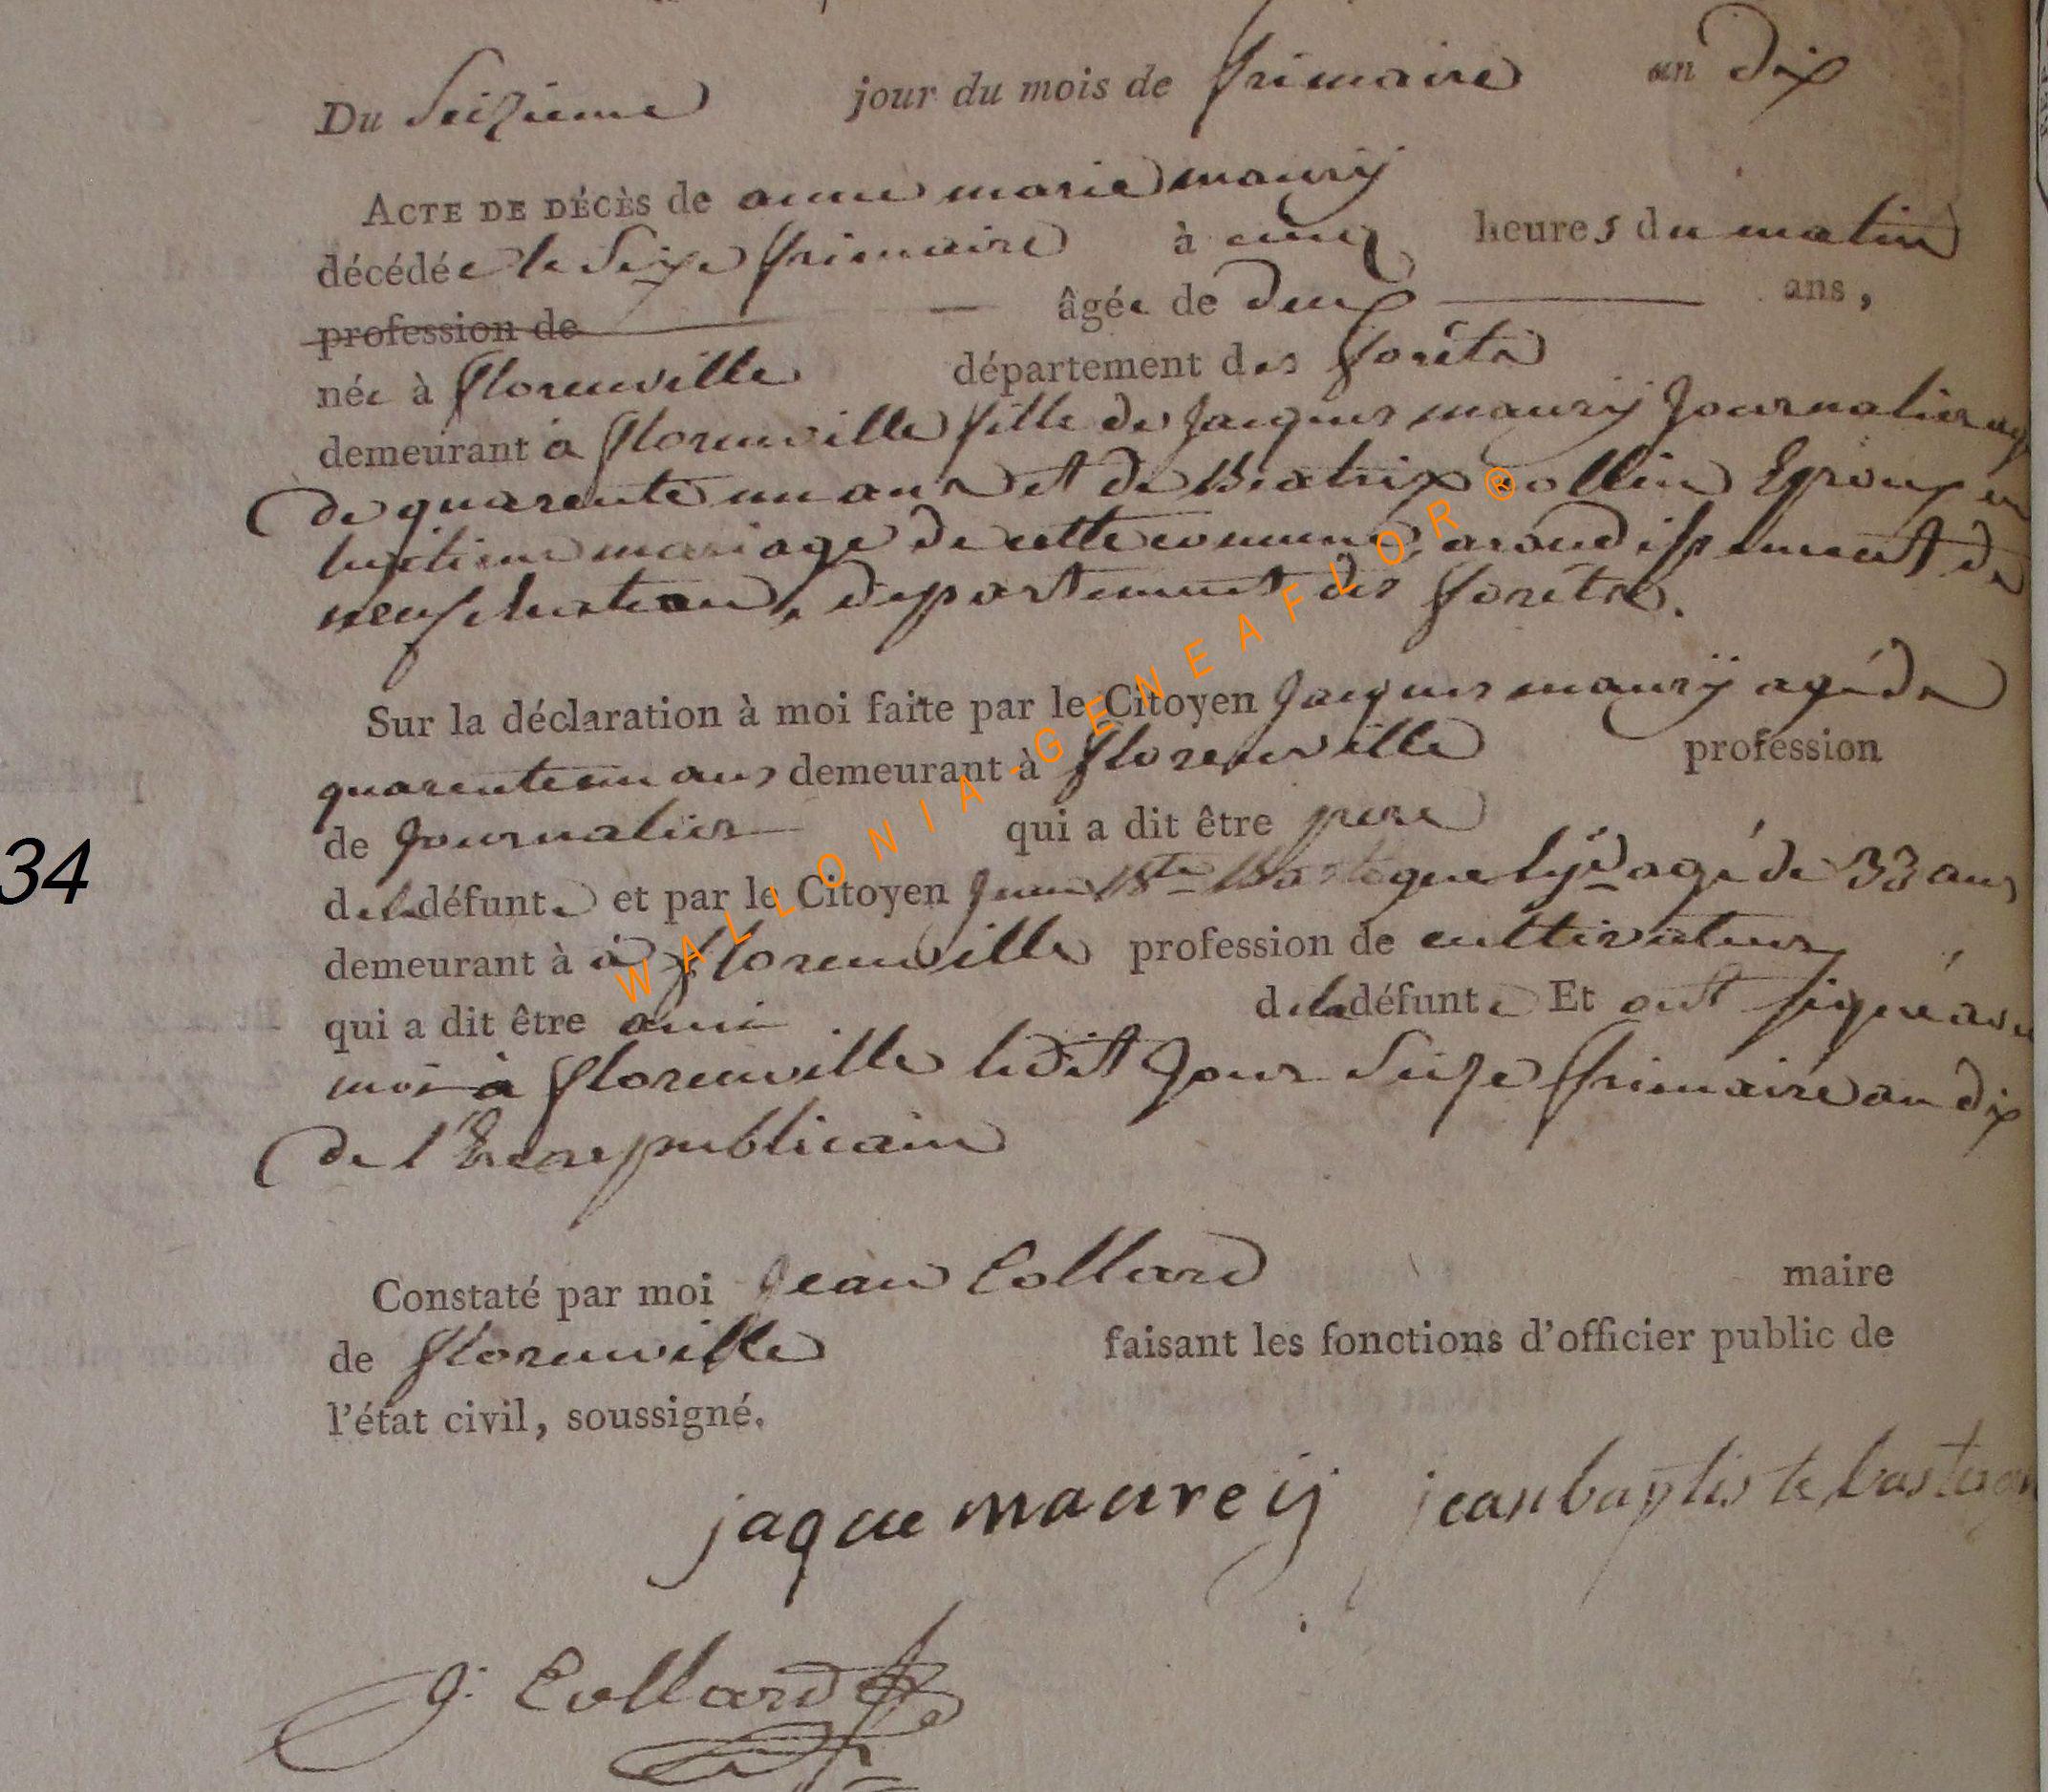 Du Seizieme jour du mois de frimaire an dix
ACTE DE DÉCÈS de anne marie maurÿ
décédée le Seize frimaire à cinq heures du matin
profession de âgée de deux ans,
née à florenville département des forêts
demeurant à florenville fille de Jacques maurÿ Journalier agé
de quarente un ans et de Beatrix Collin Epoux en
mariage de cette commune, arondissement de
neufchateau, departement des forêts.
Sur la déclaration à moi faite par le Citoyen Jacques maurÿ agé de
quarente un ans demeurant à florenville profession
de Journalier qui a dit être pere
de la défunte et par le Citoyen Jean Bte agé de 33 ans
demeurant à à florenville profession de cultivateur
qui a dit être ami de la défunte Et ont signé avec
moi à florenville ledit Jour Seize frimaire an dix
de l'Ere republicain
Constaté par moi Jean Collard maire
de florenville faisant les fonctions d'officier public de
l'état civil, soussigné.
jaque maureij jean baptiste
J. Collard
34
WALLONIA-GENEAFLOR®